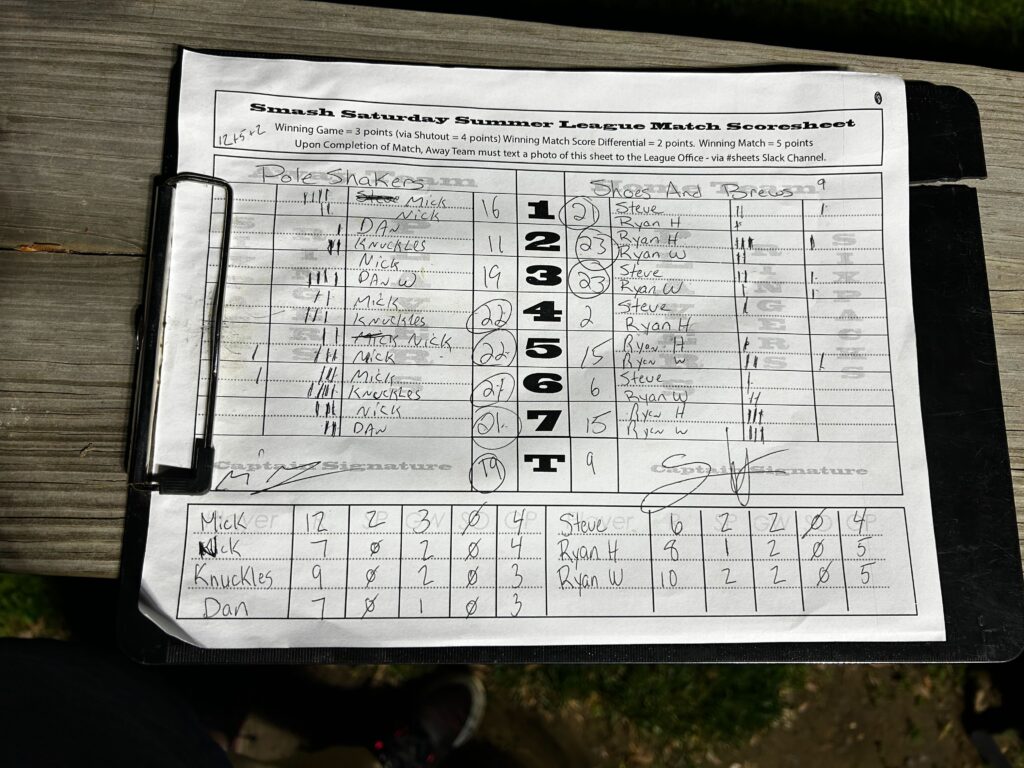 Smash Saturday Summer League Match Scoresheet
12+5+2
Winning Game = 3 points (via Shutout = 4 points) Winning Match Score Differential = 2 points. Winning Match = 5 points
Upon Completion of Match, Away Team must text a photo of this sheet to the League Office - via #sheets Slack Channel.
Pole Shakers Shoes And Brews 9
Steve Mick 16 1 21 Steve
Nick Ryan H
DAN 11 2 23 Ryan H
Knuckles Ryan W
Nick 19 3 23 Steve
DAN W Ryan W
Mick 22 4 2 Steve
Knuckles Ryan H
Mick Nick 22 5 15 Ryan H
Mick Ryan W
Mick 21 6 6 Steve
Knuckles Ryan W
Nick 21 7 15 Ryan H
DAN Ryan W
Captain Signature 19 T 9 Captain Signature
Mick 12 2 3 Ø 4 Steve 6 2 2 Ø 4
Nick 7 Ø 2 Ø 4 Ryan H 8 1 2 Ø 5
Knuckles 9 Ø 2 Ø 3 Ryan W 10 2 2 Ø 5
Dan 7 Ø 1 Ø 3